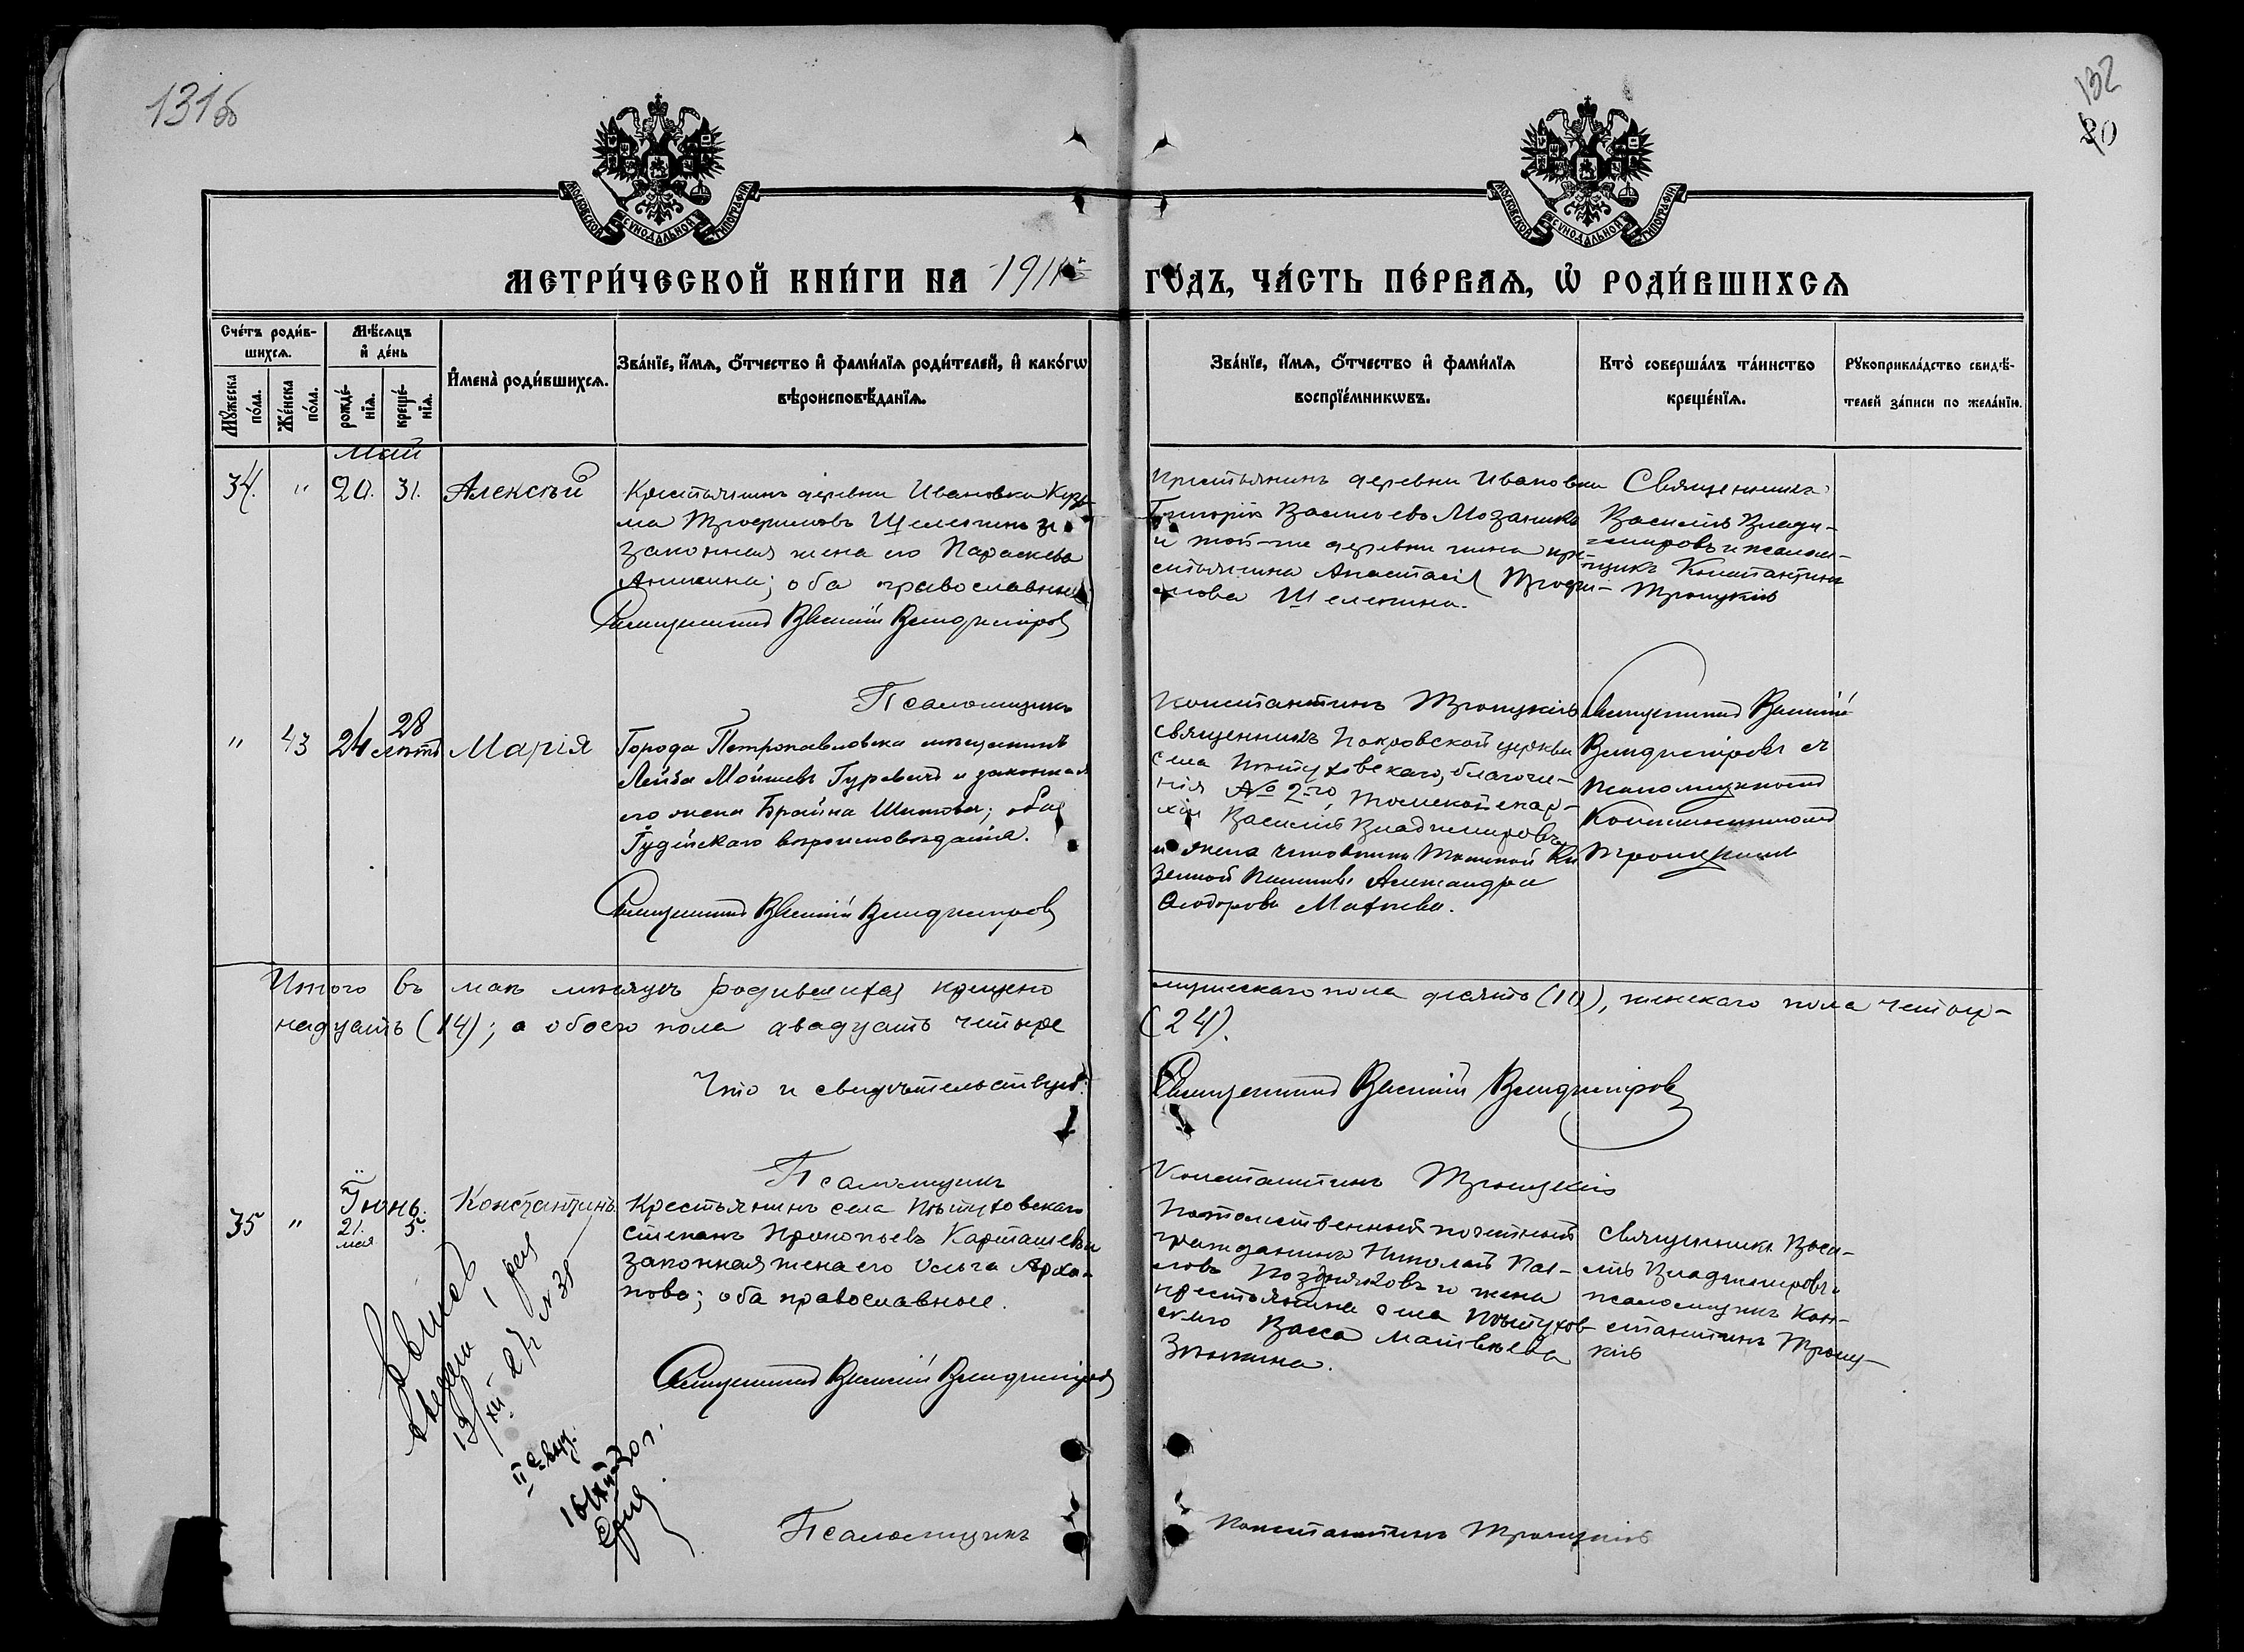 131об
132
МОСКОВСКОЙ СѴНОДАЛЬНОЙ ТИПОГРАФІИ
МОСКОВСКОЙ СѴНОДАЛЬНОЙ ТИПОГРАФІИ
МЕТРИ́ЧЕСКОЙ КНИ́ГИ НА 1911
ГО́ДЪ, ЧА́СТЬ ПЕ́РВАѦ, Ѽ РОДИ́ВШИХСѦ
Сче́тъ роди́в-
шихсѧ.
Мꙋ́жеска
по́ла.
Же́нска
по́ла.
Мѣ́сѧцъ
и҆ де́нь
рожде́-
нїѧ.
креще́-
нїѧ.
И҆мена̀ роди́вшихсѧ.
Зва́нїе, и҆́мѧ, ѻ҆́тчество и҆ фами́лїѧ роди́телей, и҆ како́гѡ
вѣроисповѣ́данїѧ.
Зва́нїе, и҆́мѧ, ѻ҆́тчество и҆ фами́лїѧ
воспрїе́мникѡвъ.
Кто̀ соверша́лъ та́инство
креще́нїѧ.
Рꙋкоприкла́дство свидѣ́-
телей за́писи по жела́нїю.
Май
34. " 20. 31. Алексѣй
Крестьянинъ деревни Ивановки Кузь-
ма Трофимовъ Щелкинъ и
законная жена его Параскева
Аникина; оба православные
Священникъ Василій Владиміровъ
Крестьянинъ деревни Ивановки
Григорій Васильевъ
и той-же деревни жена кре-
стьянина Анастасія Трофи-
мова
Священникъ
Василій Влади-
міровъ и псалом-
щикъ Константинъ
Троицкій
Псаломщикъ
Константинъ Троицкій
" 43 24 28 Марія
Города Петропавловска мещанинъ
Лейба Мойшевъ Гуревичъ и законная
его жена Брайна; оба
Іудейскаго вѣроисповѣданія.
Священникъ Василій Владиміровъ
священникъ Покровской церкви
села Пѣтуховскаго, благочи-
нія № 2-го, Томской епар-
хіи Василій Владиміровъ
и жена чиновника Томской Ка-
зенной Палаты Александра
Ѳеодорова Матвѣева.
Священникъ Василій
Владиміровъ съ
псаломщикомъ
Константиномъ
Троицкимъ
Итого въ маѣ мѣсяцѣ родившихся крещено
мужескаго пола десять (10), женскаго пола четыр-
надцать (14); а обоего пола двадцать четыре
(24).
Что и свидѣтельствуютъ:
Священникъ Василій Владиміровъ
Псаломщикъ
Константинъ Троицкій
Іюнь.
35 " 21. мая 5. Константинъ
Крестьянинъ села Пѣтуховскаго
Степанъ Прокопьевъ Карташевъ и
законная жена его Ольга Архи-
пова; оба православные.
Священникъ Василій Владиміровъ
Потомственный почетный
гражданинъ Николай Пав-
ловъ Поздняковъ и жена
крестьянина села Пѣтухов-
скаго Васса Матвѣева
Священникъ Васи-
лій Владиміровъ и
псаломщикъ Кон-
стантинъ Троиц-
кій
№ 38
Псаломщикъ
Константинъ Троицкій